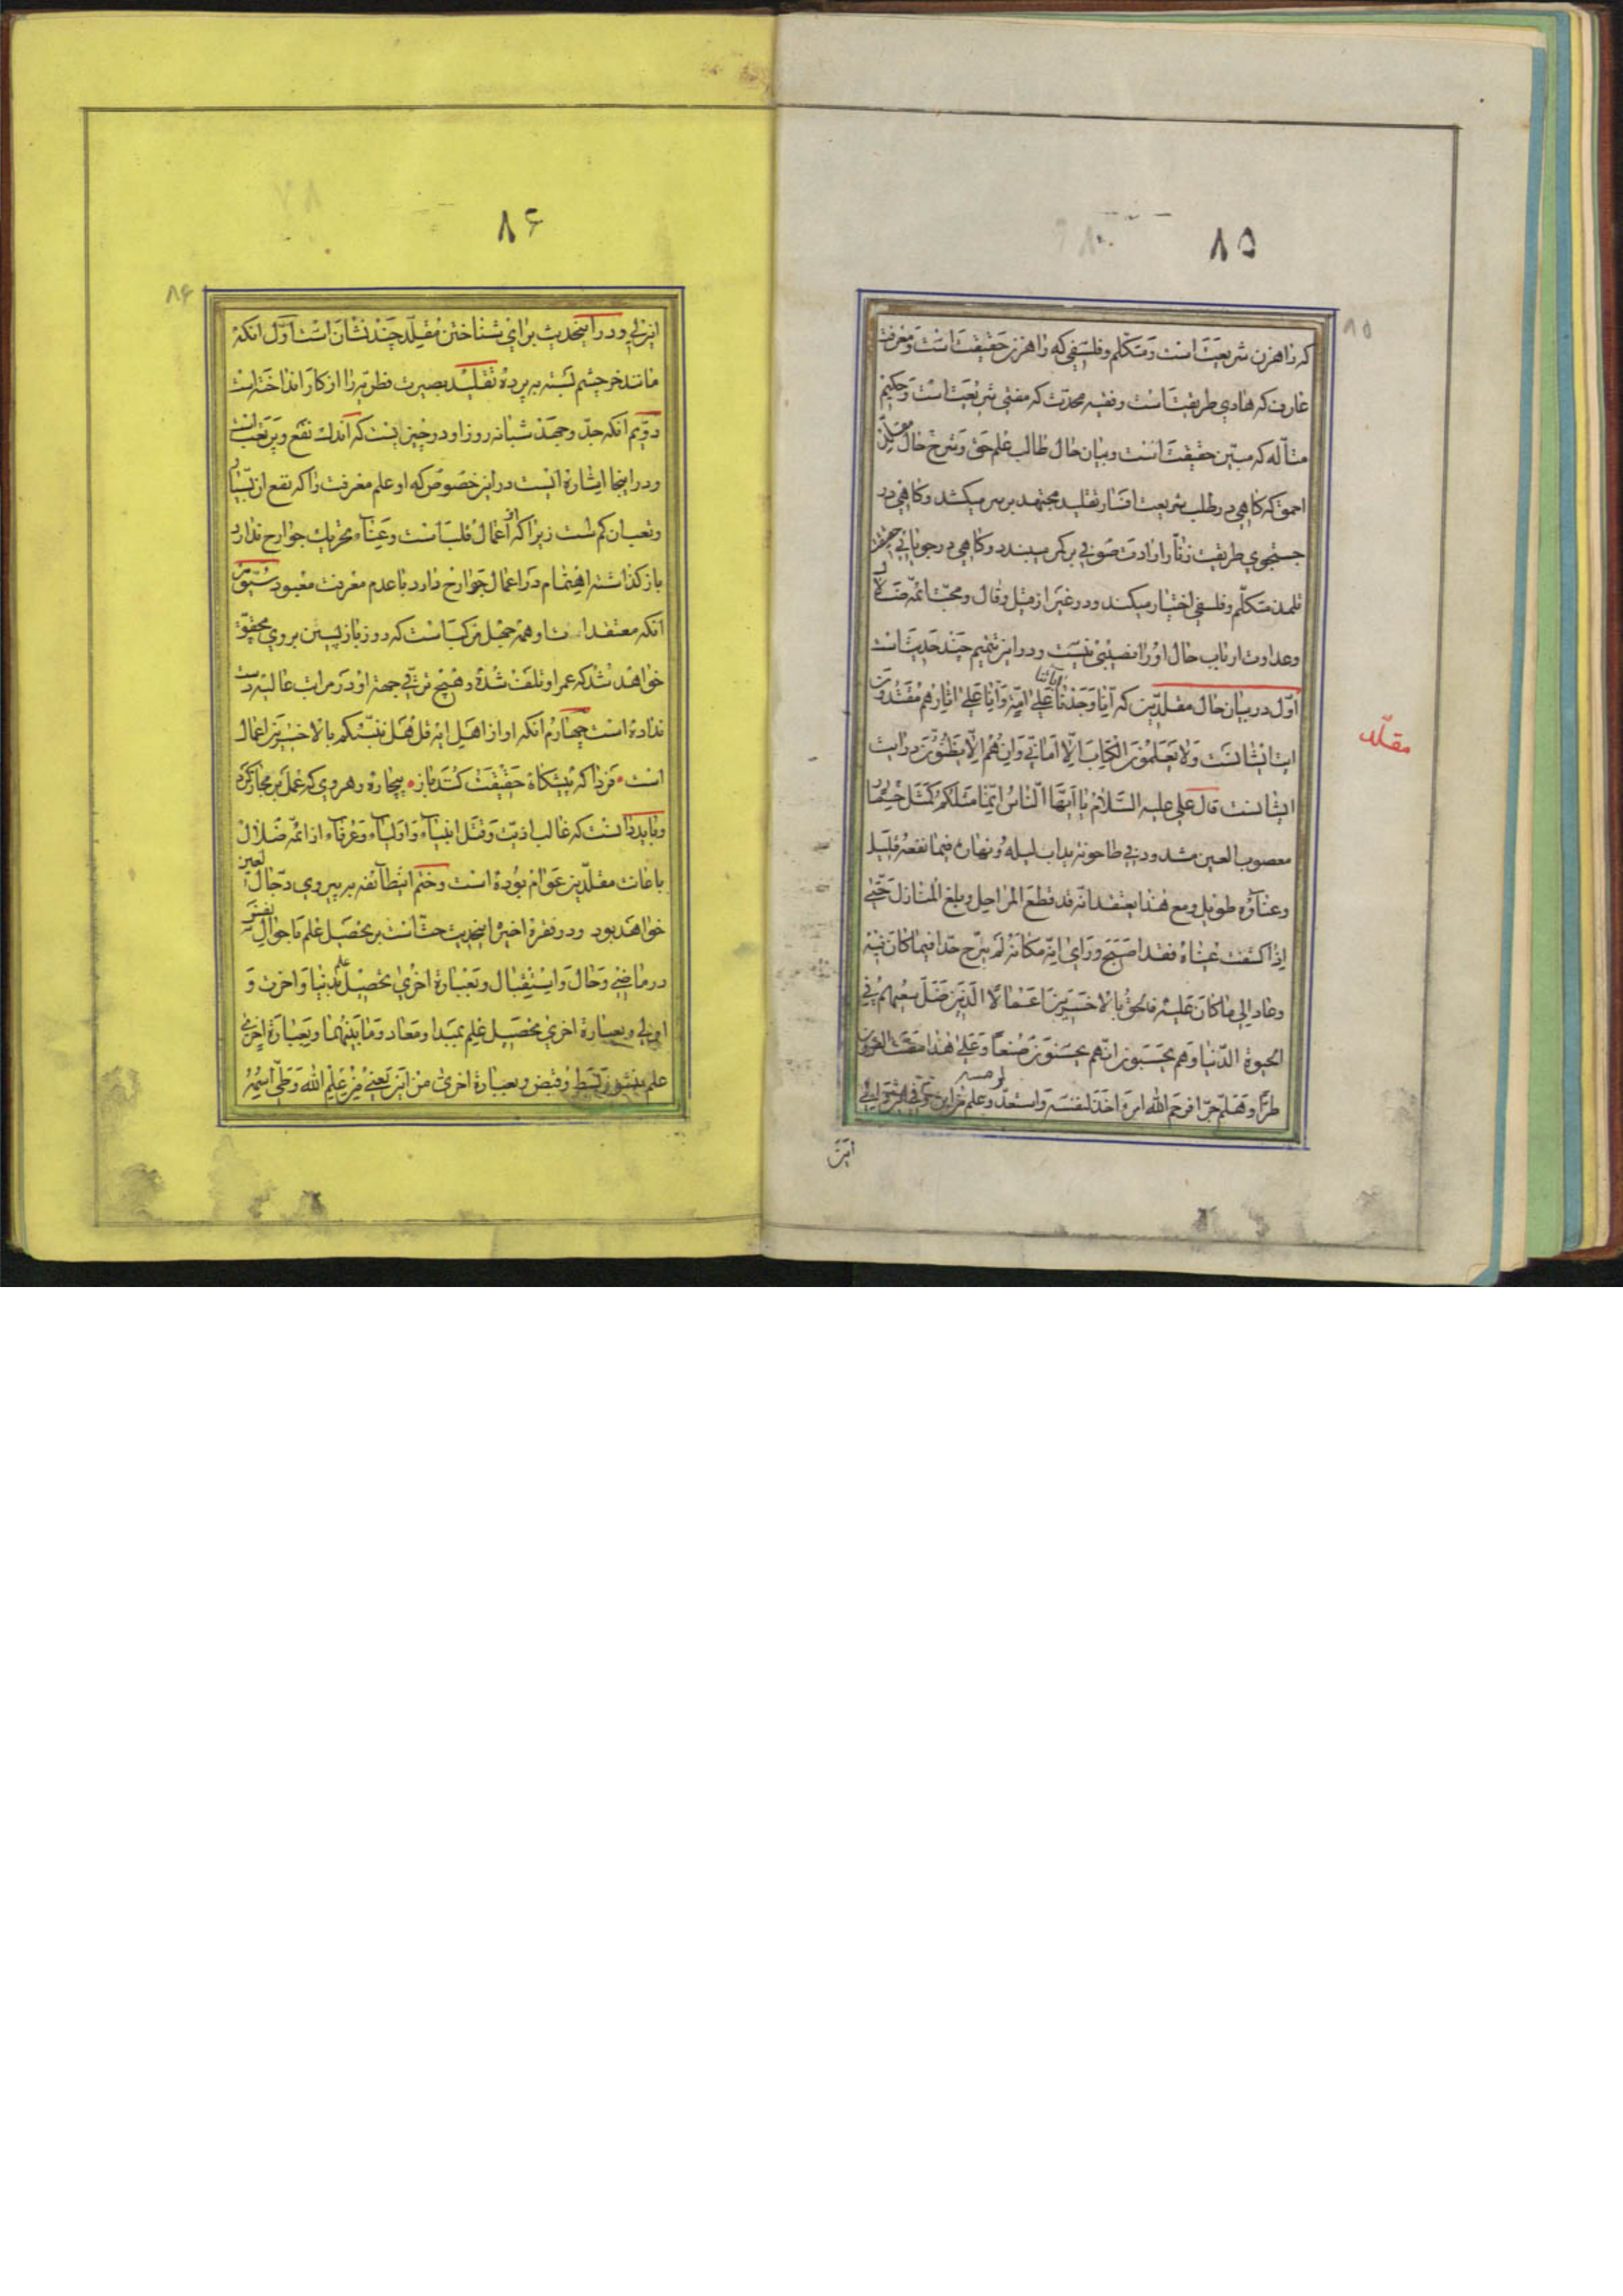 ۸۵
۸۵
که راهزن شریعت است و متکلم و فلسفی که راهزن حقیقت است و معرفت
عارف که هادی طریقت است و فقیه محدث که مفتی شریعت است و حکیم
متأله که مبین حقیقت است و بیان حال طالب علم حق و شرح حال مقلدین
احمق که کاهی در طلب شریعت افسار تقلید مجتهد بر سر میکشد و کاهی در
جستجوی طریقت زنار ارادت صوفی بر کمر میبندد و کاهی در جویائی
تلمذ متکلم و فلسفی اختیار میکند و در غیر از قیل و قال و محبت ائمه ضلال
و عداوت ارباب حال او را نصیبی نیست و در این تتمیم چند حدیث است
اول در بیان حال مقلدین که انا وجدنا آبائنا علی امة و انا علی اثارهم مقتدون
ایت ایشانست و لا یعلمون الکتاب الا امانی و ان هم الا یظنون درایت
ایشانست قال علی علیه السلام یا ایها الناس انما مثلکم کمثل حمار
معصوب العین مشدود فی طاحونه یداب لیله و نهاره فیما نفعه قلیل
و عناؤه طویل و مع هذا یعتقد انه قد قطع المراحل و بلغ المنازل حتی
اذا کشفت عیناه فقد اصبح و رای انه مکانه لم یبرح حدا فیما کان فیه
و عاد الی ما کان علیه فالحق بالاخسرین اعمالا الذین ضل سعیهم فی
الحیوة الدنیا و هم یحسبون انهم یحسنون صنعا و علی هذا مضت القرون
طرا و هلم جرا فرحم الله امرء اخذ لنفسه و استعد لرمسه و علم من این و فی این و الی
این
مقلد
۸۶
۸۶
این الی و در اینحدیث برای شناختن مقلد چند نشان است اول انکه
مانند خر چشم بسته به پرده تقلید بصیرت فطریه را از کار انداخته است
دویم انکه جد و جهد شبانه روز او در چیزیست که اندک نفع و پر تعب است
و در اینجا اشاره ایست در این خصوص که او علم معرفت را که نفع ان بسیار
و تعب ان کم است زیرا که از اعمال قلب است و عناء تحریک جوارح ندارد
باز کذاشته اهتمام در اعمال جوارح دارد با عدم معرفت معبود سیوم
انکه معتقد است و همه جهل مرکب است که روز باز پسین بر وی محقق
خواهد شد که عمر او تلف شده و هیچ ترقی جهة او در مراتب عالیه دست
نداده است چهارم انکه او از اهل ایه قل هل ننبئکم بالاخسرین اعمالا
است • فردا که پیشکاه حقیقت کند باز • بیچاره رهروی که عمل بر مجاز کرد
و باید دانست که غالب اذیت و قتل انبیاء و اولیاء و عرفاء از ائمه ضلال
باعانت مقلدین عوام بوده است و ختم انطایفه بر پیروی دجال لعین
خواهد بود و در فقره اخیره اینحدیث حث است بر تحصیل علم باحوال نفس
در ماضی و حال و استقبال و بعبارة اخری تحصیل علم بدنیا و اخرت و
اولی و بعبارة اخری تحصیل علم بمبدا و معاد و ما بینهما و بعبارة اخری
علم بسط و قبض و بعبارة اخری من این یعنی من علم الله و طی اسمه